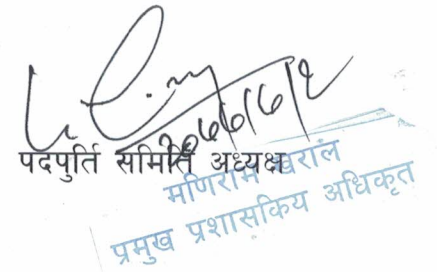 २०७७/७/२
पदपुर्ति समिति अध्यक्ष
मणिराम खराल
प्रमुख प्रशासकिय अधिकृत